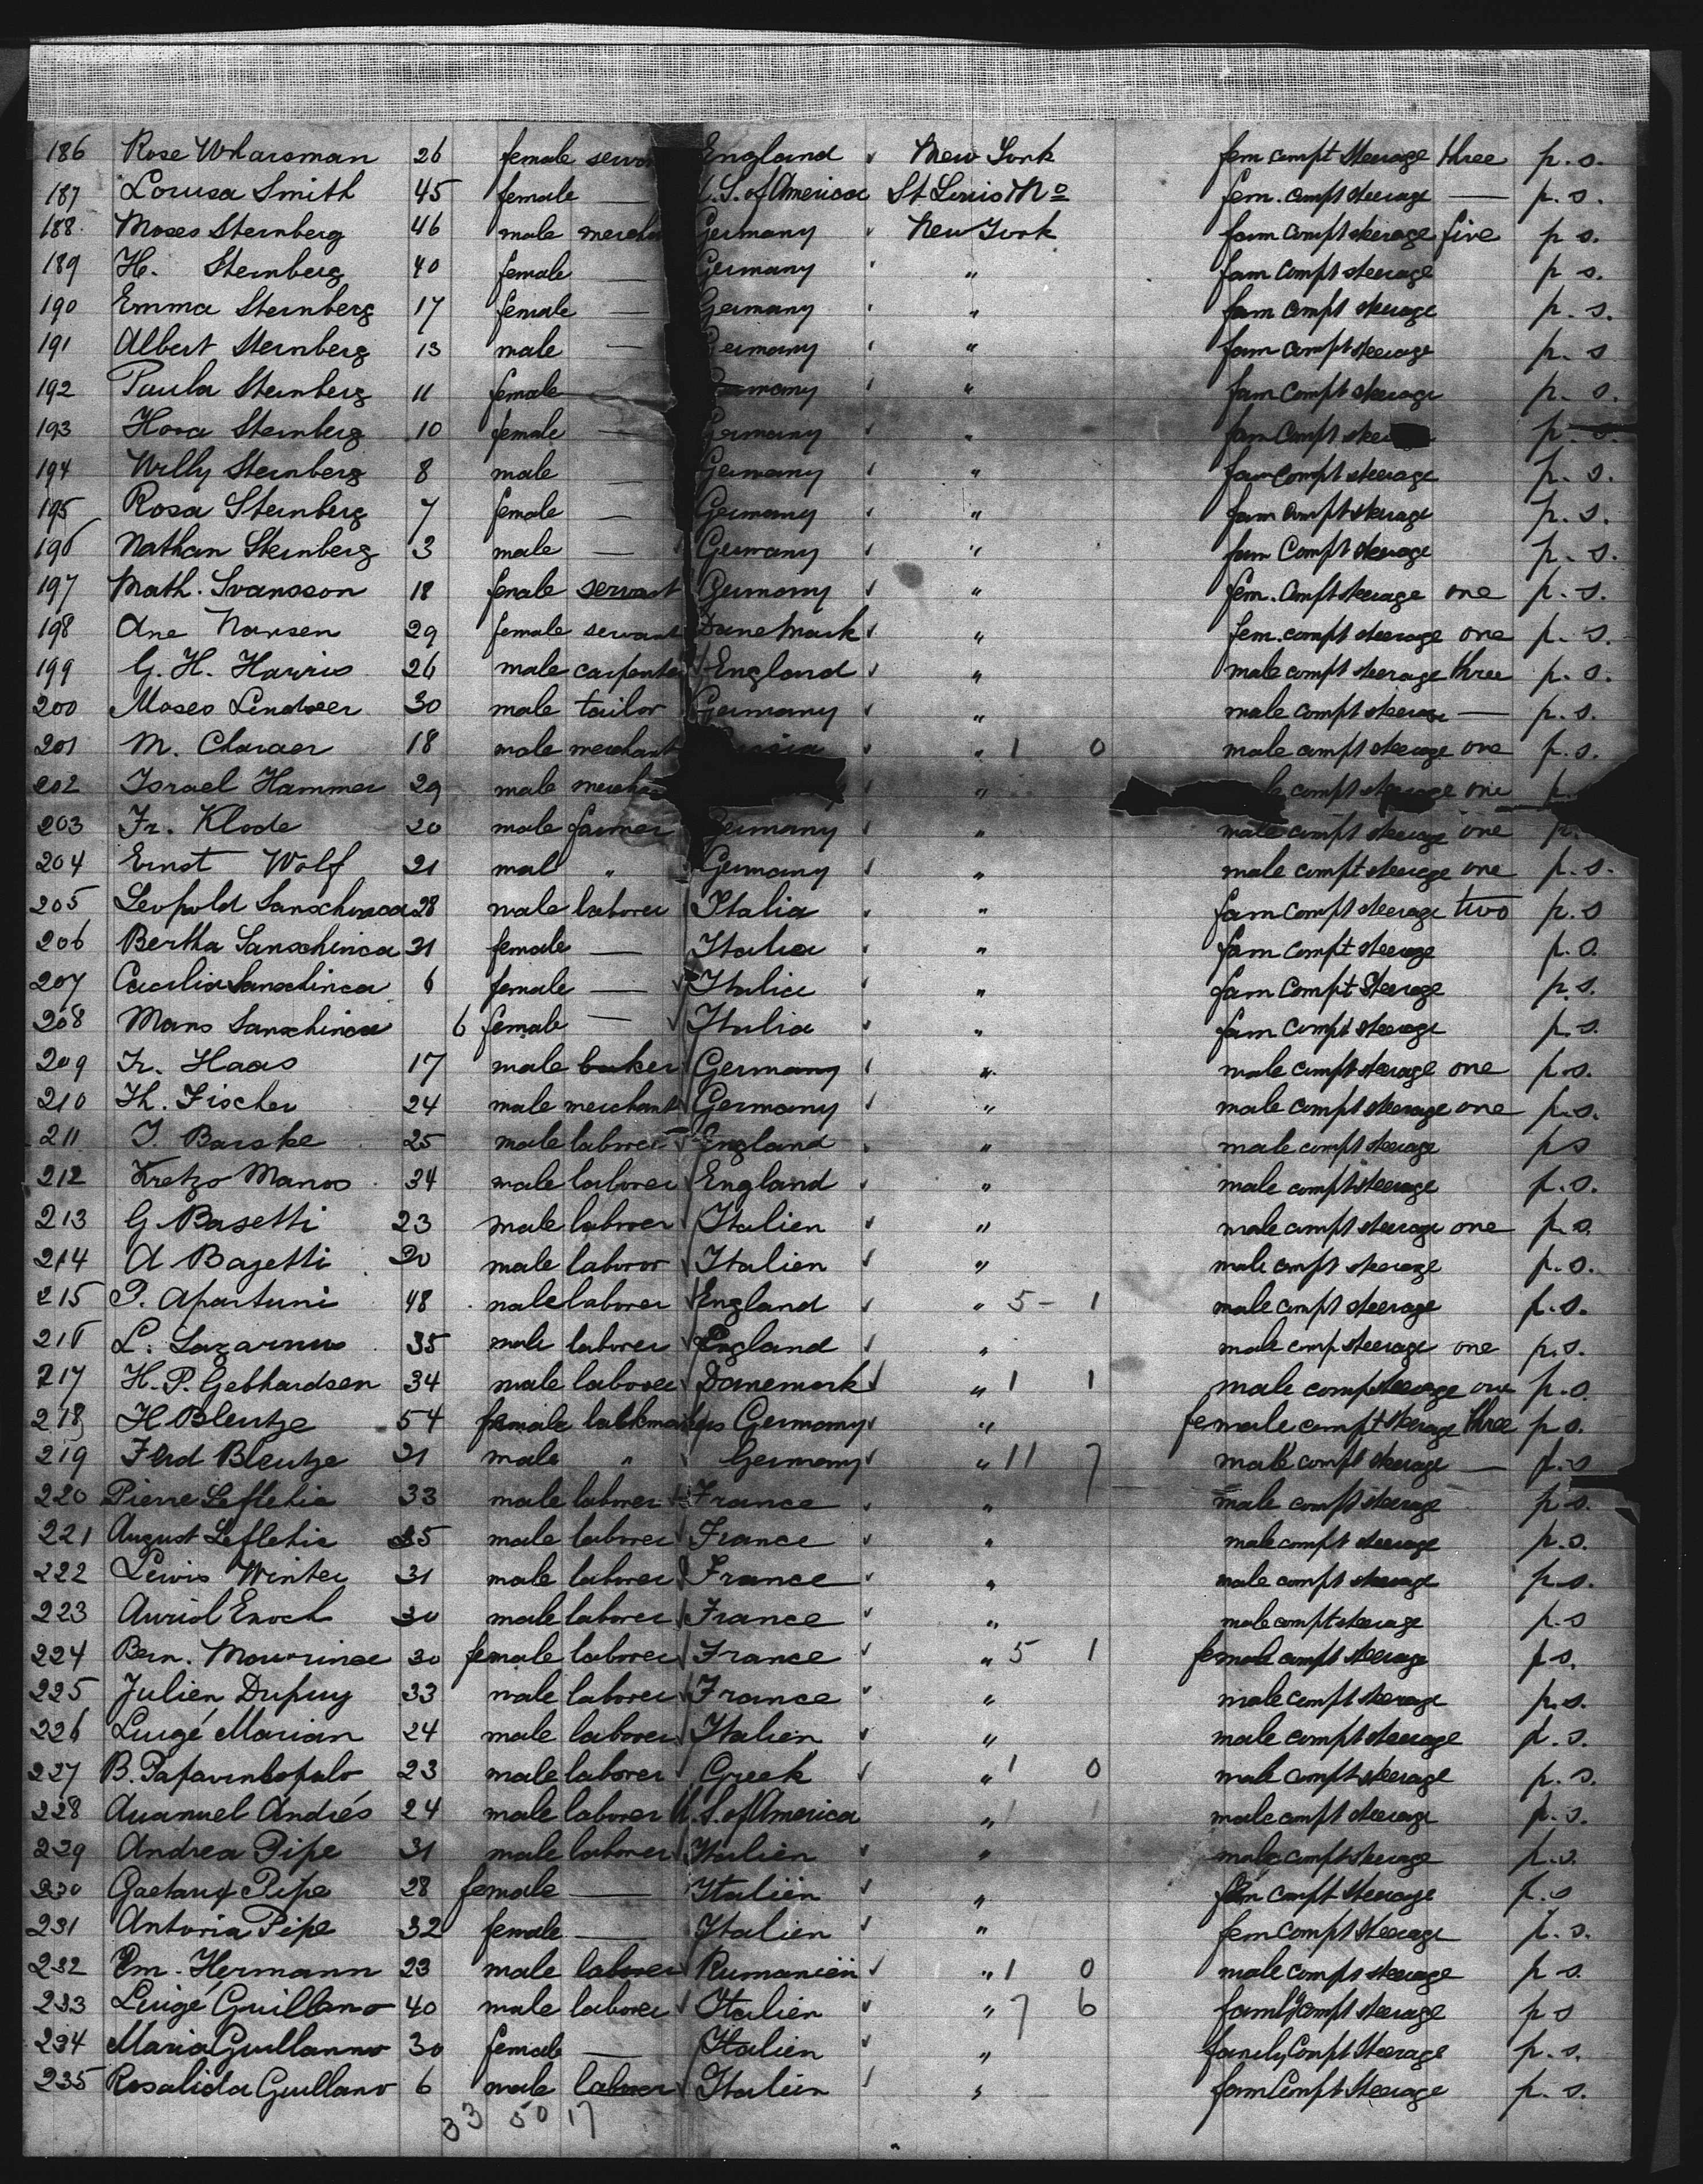 186 Rose Wharsman 26 female England New York fem compt Steerage three p. s.
187 Louisa Smith 45 female — U.S. of America St Louis Mo fem. compt steerage — p. s.
188 Moses Sternberg 46 male Germany New York fam compt steerage five p s.
189 H. Sternberg 40 female — Germany " fam compt steerage p s.
190 Emma Sternberg 17 female — Germany " fam compt steerage p. s.
191 Albert Sternberg 13 male — Germany " fam compt steerage p. s
192 Paula Sternberg 11 female — Germany " fam compt steerage p. s.
193 Sternberg 10 female — Germany " fam compt p. s.
194 Willy Sternberg 8 male — Germany " fam compt steerage p. s.
195 Rosa Sternberg 7 female — Germany " fam compt steerage p. s.
196 Nathan Sternberg 3 male — Germany " fam compt steerage p. s.
197 Math. Svansson 18 female servant Germany " fem. compt steerage one p. s.
198 Ane Hansen 29 female servant Danemark " fem. compt steerage one p. s.
199 G. H. Harris 26 male carpenter England " male compt steerage three p. s.
200 Moses 30 male tailor Germany " male compt steerage — p. s.
201 M. 18 male merchant " 1 0 male compt steerage one p. s.
202 Israel Hammer 29 male " compt steerage one p.
203 Fr. Klode 20 male farmer Germany " male compt steerage one p.
204 Ernst Wolf 21 mal " Germany " male compt steerage one p. s.
205 Leopold Sanschinca 28 male laborer Italia " fam compt steerage two p. s
206 Bertha Sanschinca 31 female — Italia " fam compt steerage p. s.
207 Sanschinca 6 female — Italia " fam compt Steerage p. s.
208 Sanschinca 6 female — Italia " fam compt steerage p. s.
209 Fr. Haas 17 male Germany " male compt steerage one p. s.
210 Th. Fischer 24 male merchant Germany " male compt steerage one p. s.
211 25 male laborer England " male compt steerage p s
212 Kretzo Manos 34 male laborer England " male compt steerage p. s.
213 G Basetti 23 male laborer Italien " male compt steerage one p. s.
214 A Bazetti 20 male laboror Italien " male compt steerage p. s.
215 P. Apartuni 48 male laborer England " 5 - 1 male compt steerage p. s.
216 L. Lazarnus 35 male laborer England " male comp steerage one p. s.
217 H. P. Gebhardsen 34 male laborer Danemark " 1 1 male comp steerage one p. s
218 H Bleutge 54 female Germany " female compt steerage three p s.
219 Ferd Bleutge 21 male " Germany " 11 7 male compt steerage — p. s
220 Pierre Lefletic 33 male laborer France " male compt steerage p s.
221 August Lefletic 35 male laborer France " male compt steerage p. s.
222 Lewis Winter 31 male laborer France " male compt steerage p. s.
223 Auriol Enoch 30 male laborer France " male compt steerage p. s
224 Bern. 30 female laborer France " 5 1 female compt steerage p s.
225 Julien Dupuy 33 male laborer France " male compt steerage p. s.
226 Luigé Marian 24 male laborer Italien " male compt steerage p. s.
227 B. 23 male laborer Greek " 1 0 male compt steerage p. s.
228 Andrés 24 male laborer U.S. of America " 1 1 male compt steerage p. s.
229 Andrea Pipe 31 male laborer Italien " male compt steerage p. s.
230 Pipe 28 female — Italien " fem compt steerage p. s
231 Antoria Pipe 32 female — Italien " fem compt steerage p. s.
232 Em. Hermann 23 male laborer Rumanien " 1 0 male comps steerage p s.
233 Luigé Guillano 40 male laborer Italien " 7 6 family compt steerage p s
234 Maria Guillanno 30 female — Italien " family Compt Steerage p. s.
235 Rosalida Guillano 6 male laborer Italien " fam Compt Steerage p. s.
33 50 17